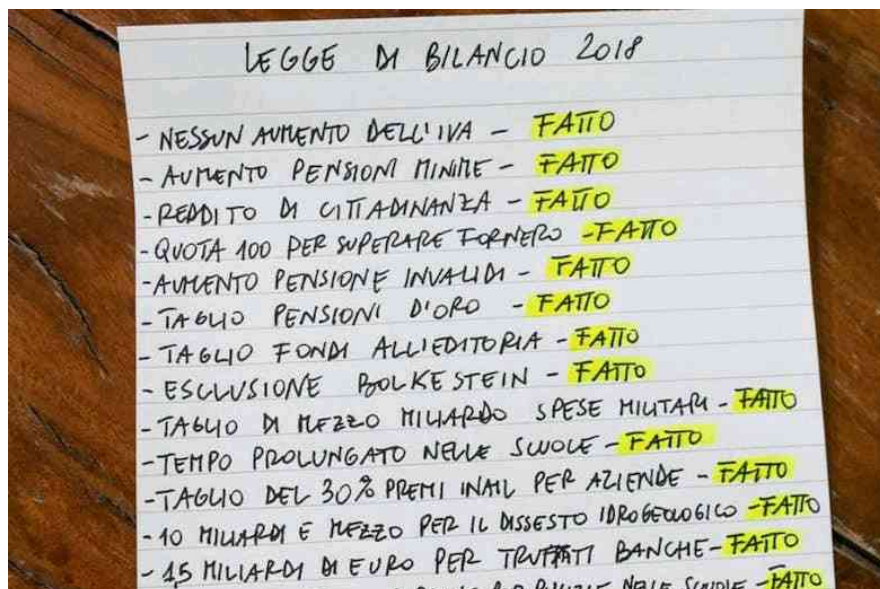 LEGGE DI BILANCIO 2018
- NESSUN AUMENTO DELL'IVA - FATTO
- AUMENTO PENSIONI MINIME - FATTO
- REDDITO DI CITTADINANZA - FATTO
- QUOTA 100 PER SUPERARE FORNERO - FATTO
- AUMENTO PENSIONE INVALIDI - FATTO
- TAGLIO PENSIONI D'ORO - FATTO
- TAGLIO FONDI ALL'EDITORIA - FATTO
- ESCLUSIONE BOLKESTEIN - FATTO
- TAGLIO DI MEZZO MILIARDO SPESE MILITARI - FATTO
- TEMPO PROLUNGATO NELLE SCUOLE - FATTO
- TAGLIO DEL 30% PREMI INAIL PER AZIENDE - FATTO
- 10 MILIARDI E MEZZO PER IL DISSESTO IDROGEOLOGICO - FATTO
- 1,5 MILIARDI DI EURO PER TRUFFATI BANCHE - FATTO
PULIZIE NELLE SCUOLE - FATTO